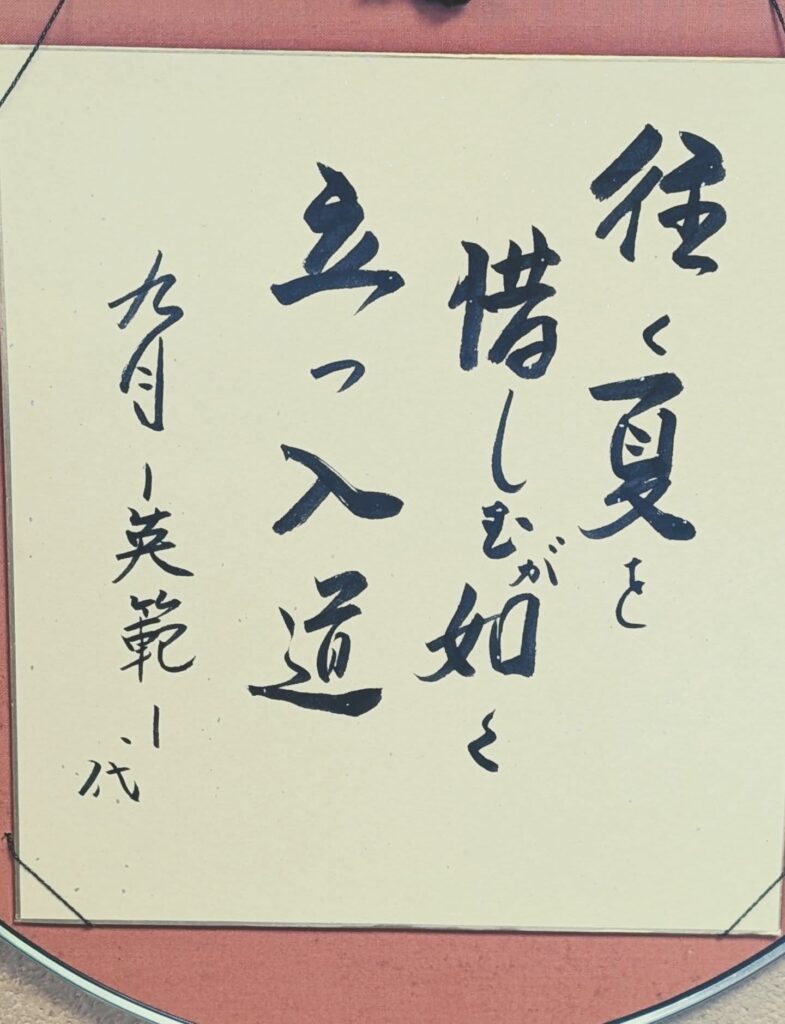 往く夏を
惜しむが如く
立つ入道
九月 -英範-
代